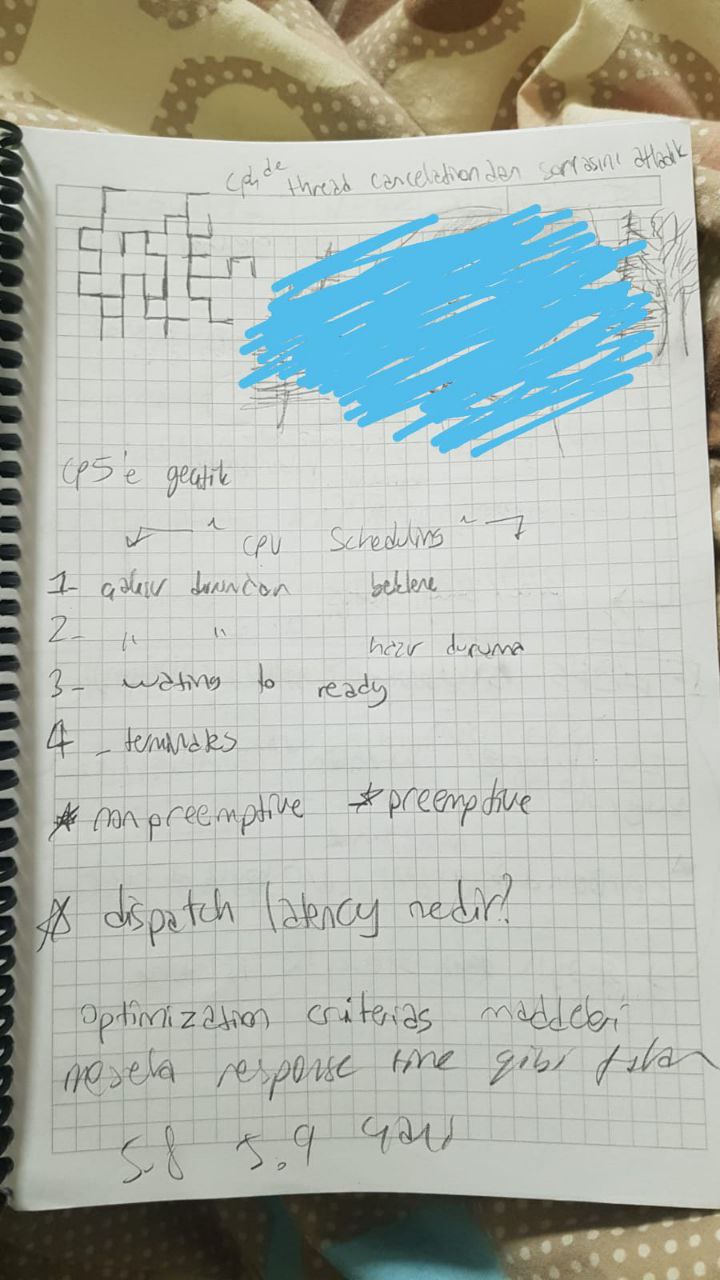 cp4 de thread cancelationdan sonrasını atladık
CP5'e geçtik
~ CPU Scheduling ~
1- çalışır durumdan bekleme
2- " " hazır duruma
3- wating to ready
4 - terminates
* nonpreemptive * preemptive
* dispatch latency nedir?
optimization criterias maddeleri
mesela response time gibi falan
5.8 5.9